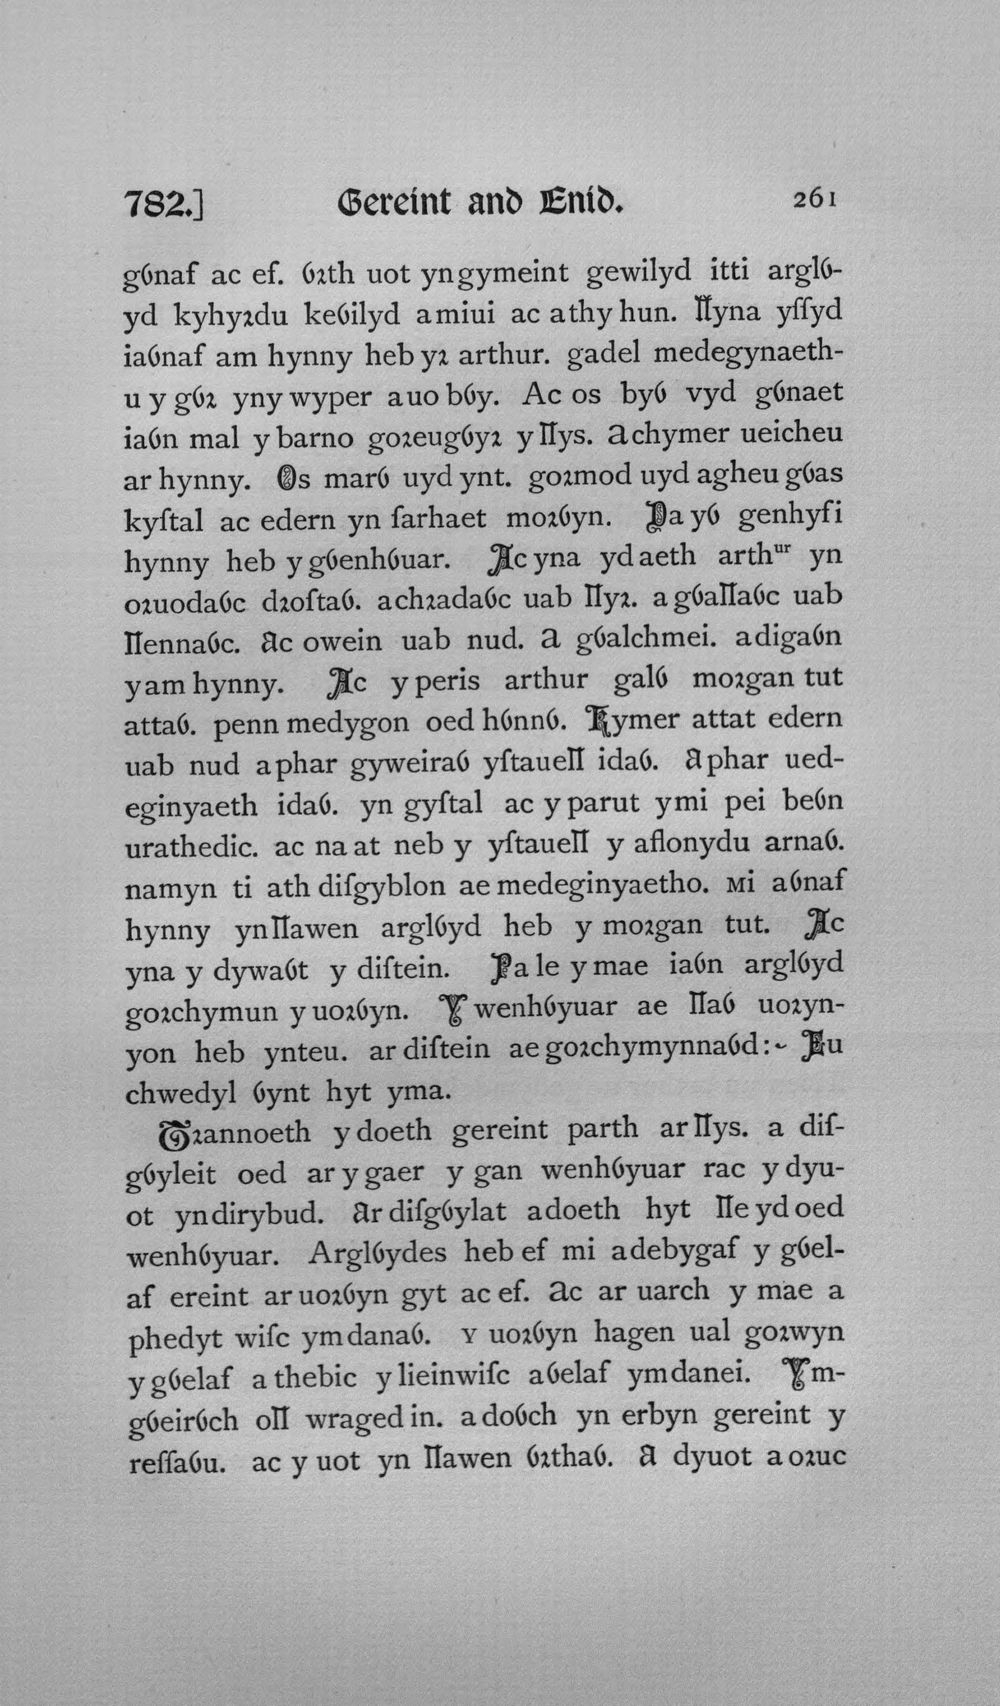 782.] Gereint and Enid. 261
gỽnaf ac ef. ỽꝛth uot yngymeint gewilyd itti arglỽ-
yd kyhyꝛdu keỽilyd amiui ac athy hun. Ỻyna yſſyd
iaỽnaf am hynny heb yꝛ arthur. gadel medegynaeth-
u y gỽꝛ yny wyper auo bỽy. Ac os byỽ vyd gỽnaet
iaỽn mal y barno goꝛeugỽyꝛ y ỻys. achymer ueicheu
ar hynny. Os marỽ uyd ynt. goꝛmod uyd agheu gỽas
kyſtal ac edern yn ſarhaet moꝛỽyn. Da yỽ genhyfi
hynny heb y gỽenhỽuar. Ac yna yd aeth arthᵘʳ yn
oꝛuodaỽc dꝛoſtaỽ. achꝛadaỽc uab ỻyꝛ. a gỽaỻaỽc uab
ỻennaỽc. Ac owein uab nud. A gỽalchmei. adigaỽn
yam hynny. Ac y peris arthur galỽ moꝛgan tut
attaỽ. penn medygon oed hỽnnỽ. Kymer attat edern
uab nud aphar gyweiraỽ yſtaueỻ idaỽ. Aphar ued-
eginyaeth idaỽ. yn gyſtal ac y parut ymi pei beỽn
urathedic. ac na at neb y yſtaueỻ y aflonydu arnaỽ.
namyn ti ath diſgyblon ae medeginyaetho. Mi aỽnaf
hynny ynỻawen arglỽyd heb y moꝛgan tut. Ac
yna y dywaỽt y diſtein. Pa le y mae iaỽn arglỽyd
goꝛchymun y uoꝛỽyn. Y wenhỽyuar ae ỻaỽ uoꝛyn-
yon heb ynteu. ar diſtein ae goꝛchymynnaỽd:~ Eu
chwedyl ỽynt hyt yma.
Tꝛannoeth y doeth gereint parth ar ỻys. a diſ-
gỽyleit oed ar y gaer y gan wenhỽyuar rac y dyu-
ot yndirybud. Ar diſgỽylat adoeth hyt ỻe yd oed
wenhỽyuar. Arglỽydes heb ef mi adebygaf y gỽel-
af ereint ar uoꝛỽyn gyt ac ef. Ac ar uarch y mae a
phedyt wiſc ymdanaỽ. Y uoꝛỽyn hagen ual goꝛwyn
y gỽelaf a thebic y lieinwiſc aỽelaf ymdanei. Ym-
gỽeirỽch oỻ wraged in. a doỽch yn erbyn gereint y
reſſaỽu. ac y uot yn ỻawen ỽꝛthaỽ. A dyuot a oꝛuc